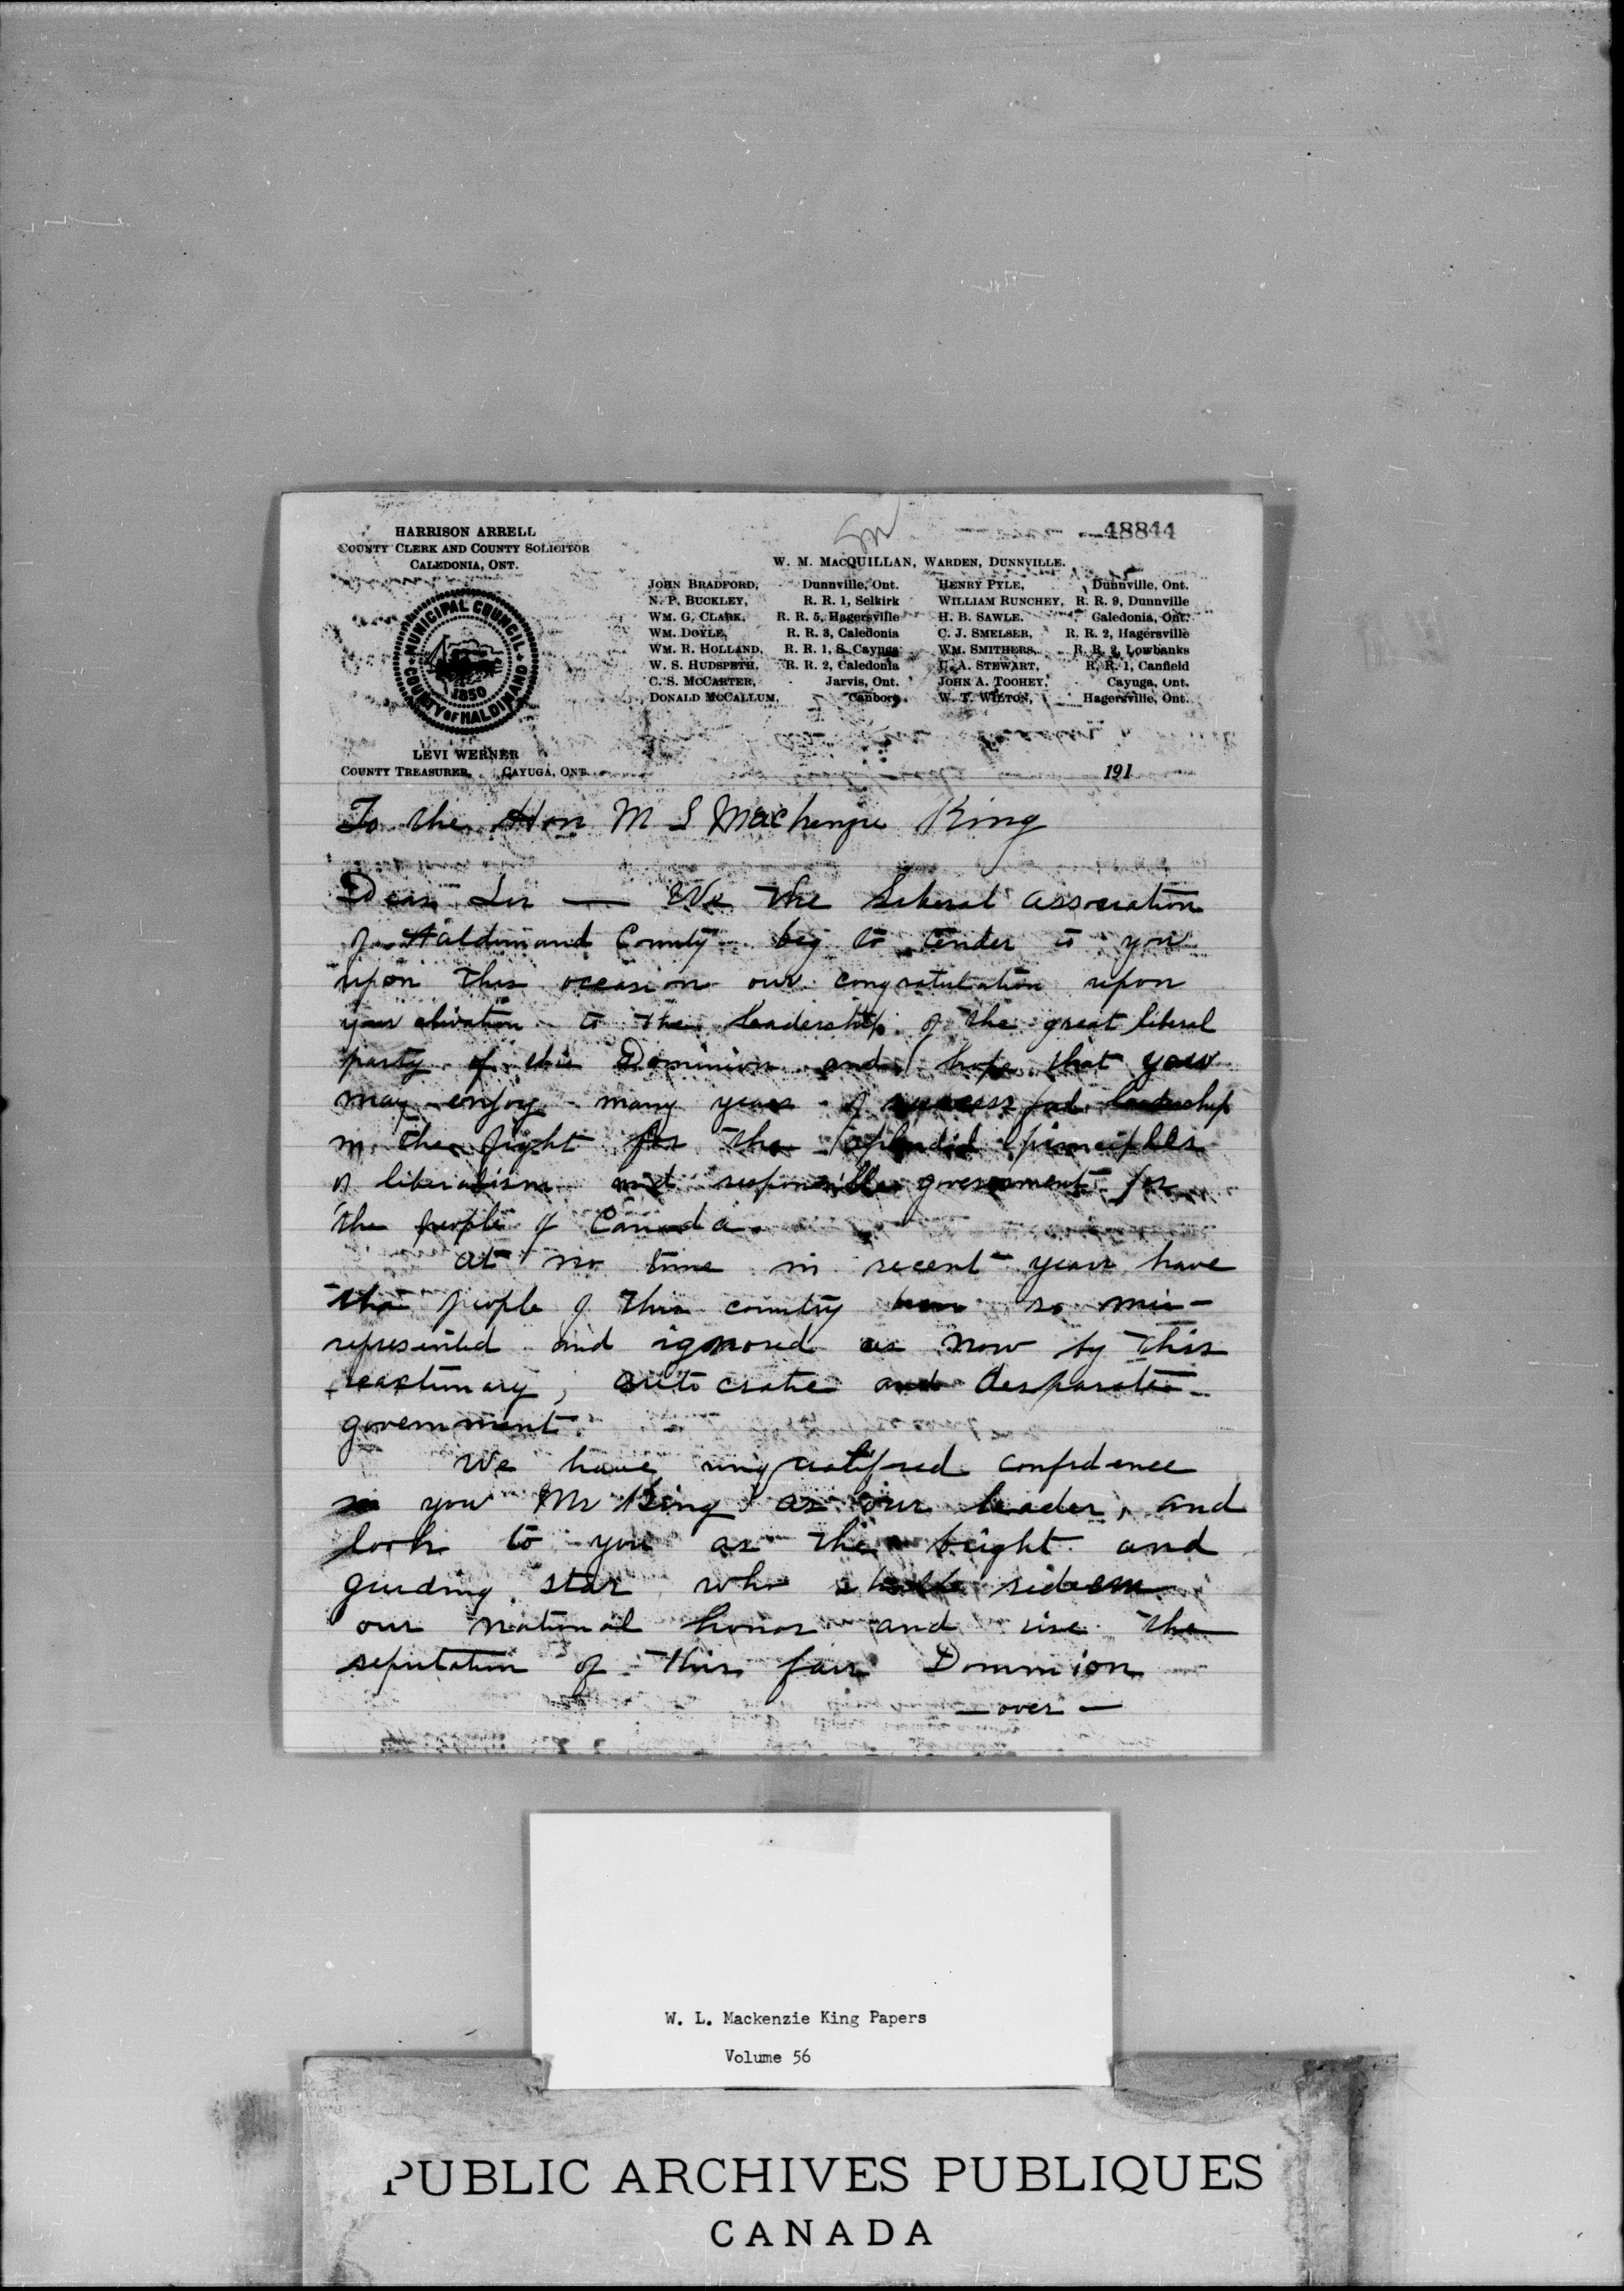 48844
HARRISON ARRELL
COUNTY CLERK AND COUNTY SOLICITOR
CALEDONIA, ONT.
MUNICIPAL COUNCIL
COUNTY OF HALDIMAND
1850
LEVI WERNER
COUNTY TREASURER, CAYUGA, ONT.
W. M. MACQUILLAN, WARDEN, DUNNVILLE.
JOHN BRADFORD, Dunnville, Ont.
N. P. BUCKLEY, R. R. 1, Selkirk
WM. G. CLARK, R. R. 5, Hagersville
WM. DOYLE, R. R. 3, Caledonia
WM. R. HOLLAND, R. R. 1, S. Cayuga
W. S. HUDSPETH, R. R. 2, Caledonia
C. S. MCCARTER, Jarvis, Ont.
DONALD MCCALLUM, Canboro
HENRY PYLE, Dunnville, Ont.
WILLIAM RUNCHEY, R. R. 9, Dunnville
H. B. SAWLE, Caledonia, Ont.
C. J. SMELSER, R. R. 2, Hagersville
WM. SMITHERS, R. R. 2, Lowbanks
A. STEWART, R. R. 1, Canfield
JOHN A. TOOHEY, Cayuga, Ont.
W. T. WILTON, Hagersville, Ont.
191
To the Hon M S Mackenzie King
Dear Sir — We the Liberal association
of Haldimand County beg to tender to you
upon this occasion our congratulation upon
your elivation to the leadership of the great liberal
party of this Dominion and hope that you
may enjoy many years of successful leadership
in the fight for the splendid principles
of liberalism and responsible government for
the people of Canada.
at no time in recent years have
the people of this country been so mis-
represented and ignored as now by this
reactionary, autocratic and desparate
government.
We have unqualified confidence
in you Mr King as our leader, and
look to you as the bright and
guiding star who shall redeem
our national honor and rise the
reputation of this fair Dominion
— over —
W. L. Mackenzie King Papers
Volume 56
PUBLIC ARCHIVES PUBLIQUES
CANADA